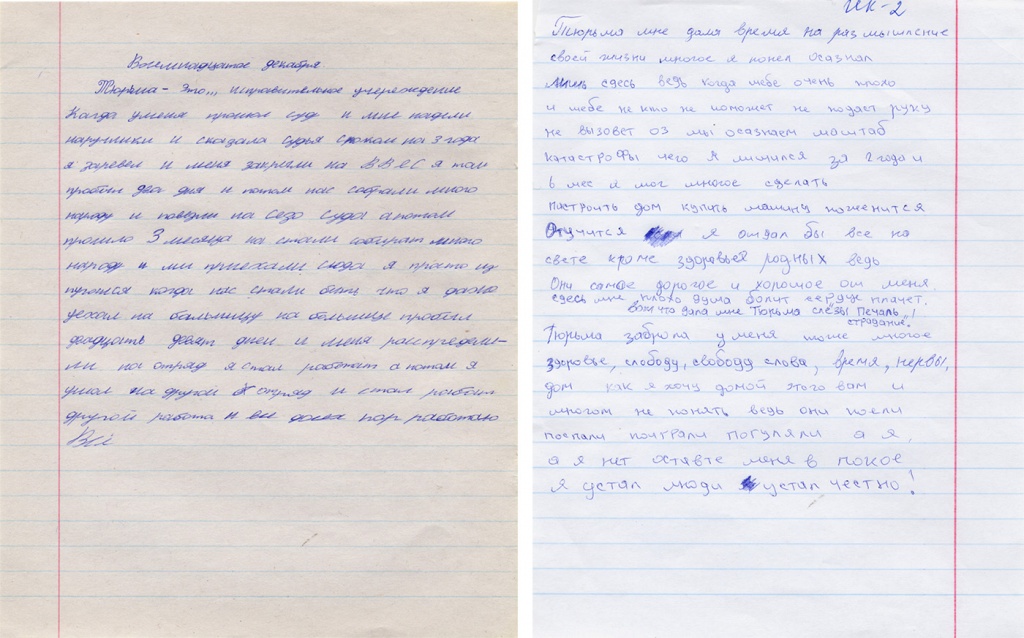 Восемнадцатое декабря.
Тюрьма - это... исправительное учереждение
Когда уменя прошол суд и мне надели
наручники и сказала судья сроком на 3 года
я заревел и меня закрыли на ВВС я там
пробыл два дня и потом нас собрали много
народу и повезли на Сезо суда а потом
прошло 3 месяца на стали собират много
народу и ми приехали сюда я просто из
пугался когда нас стали бить что я даже
уехал на больницу на больнице пробыл
двадцать девят дней и меня распредели-
ли на отряд я стал работат а потом я
ушол на другой отряд и стал работат
другой работа и вы до сех пор работаю
Всё
ИК-2
Тюрьма мне дала время на размышление
своей жизни многое я понел осазнал
лишь сдесь ведь когда тебе очень плохо
и тебе не кто не поможет не подаст руку
не вызовет 03 мы осазнаем маштаб
катастрофы чего я лишился за 2 года и
6 мес я мог многое сделать
построить дом купить машину поженится
Отучится я отдал бы все на
свете кроме здоровья родных ведь
Они самое дорогое и хорошое от меня.
сдесь мне плохо душа болит сердце плачет.
вот что дала мне Тюрьма слёзы Печаль"!
страдание.
Тюрьма забрала у меня тоже многое
здоровье, слободу, свободу слова, время, нервы,
дом как я хочу домой этого вам и
многом не понять ведь они поели
поспали поиграли погуляли а я.
а я нет оставте меня в покое
я устал люди устал честно!